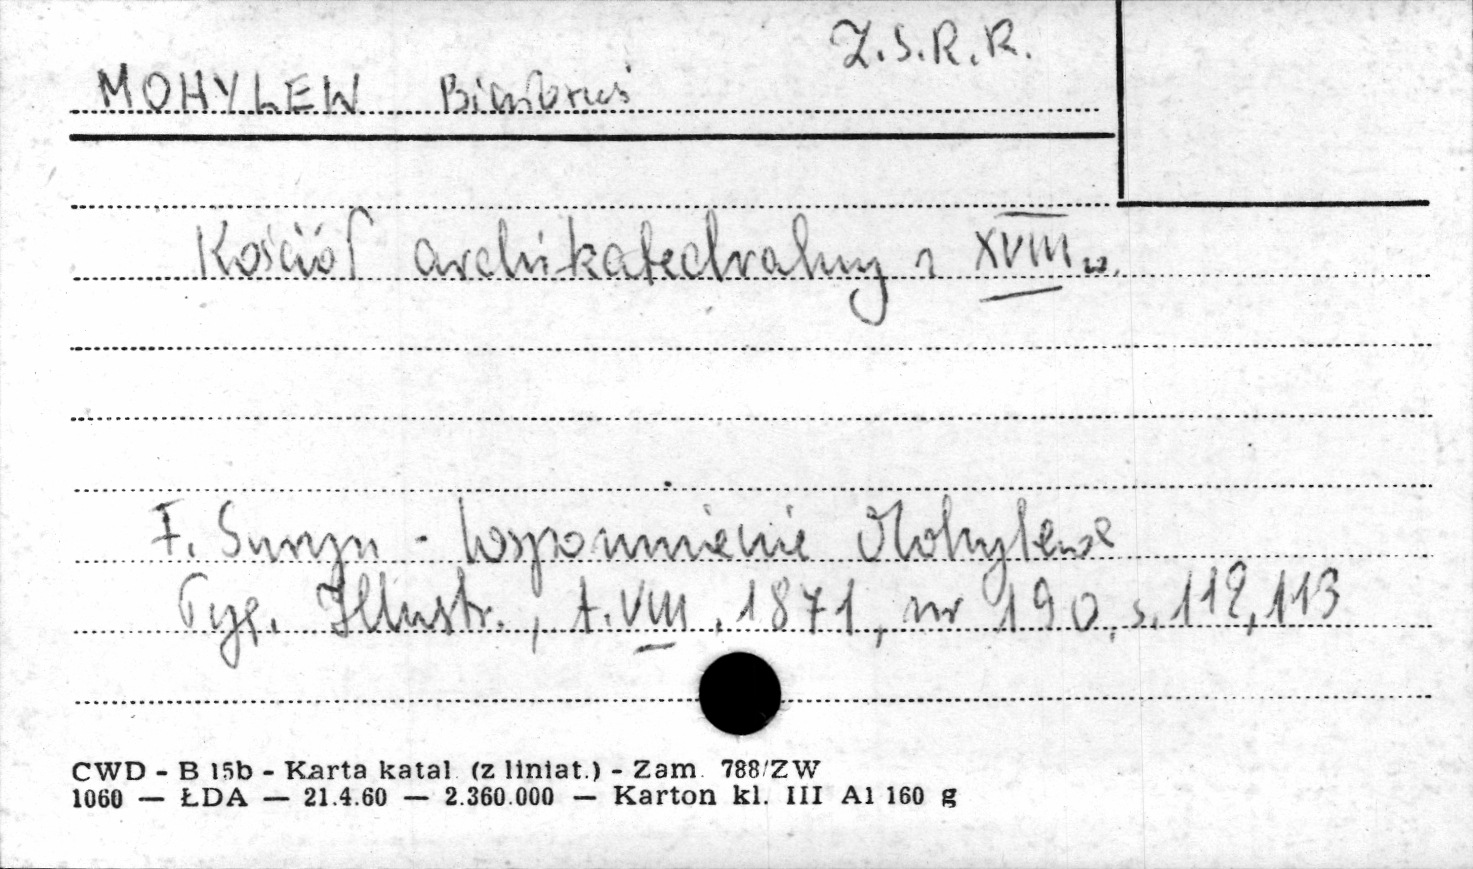 Z.S.R.R.
MOHYLEW Białoruś
Kościół archikatedralny z XVIII w.
F. Surzyn - Wspomnienie Mohylewa
Tyg. Illustr., t. VIII, 1871, nr 190, s. 112, 113
CWD - B 15b - Karta katal. (z liniat.) - Zam. 788/ZW
1060 — ŁDA — 21.4.60 — 2.360.000 — Karton kl. III A1 160 g